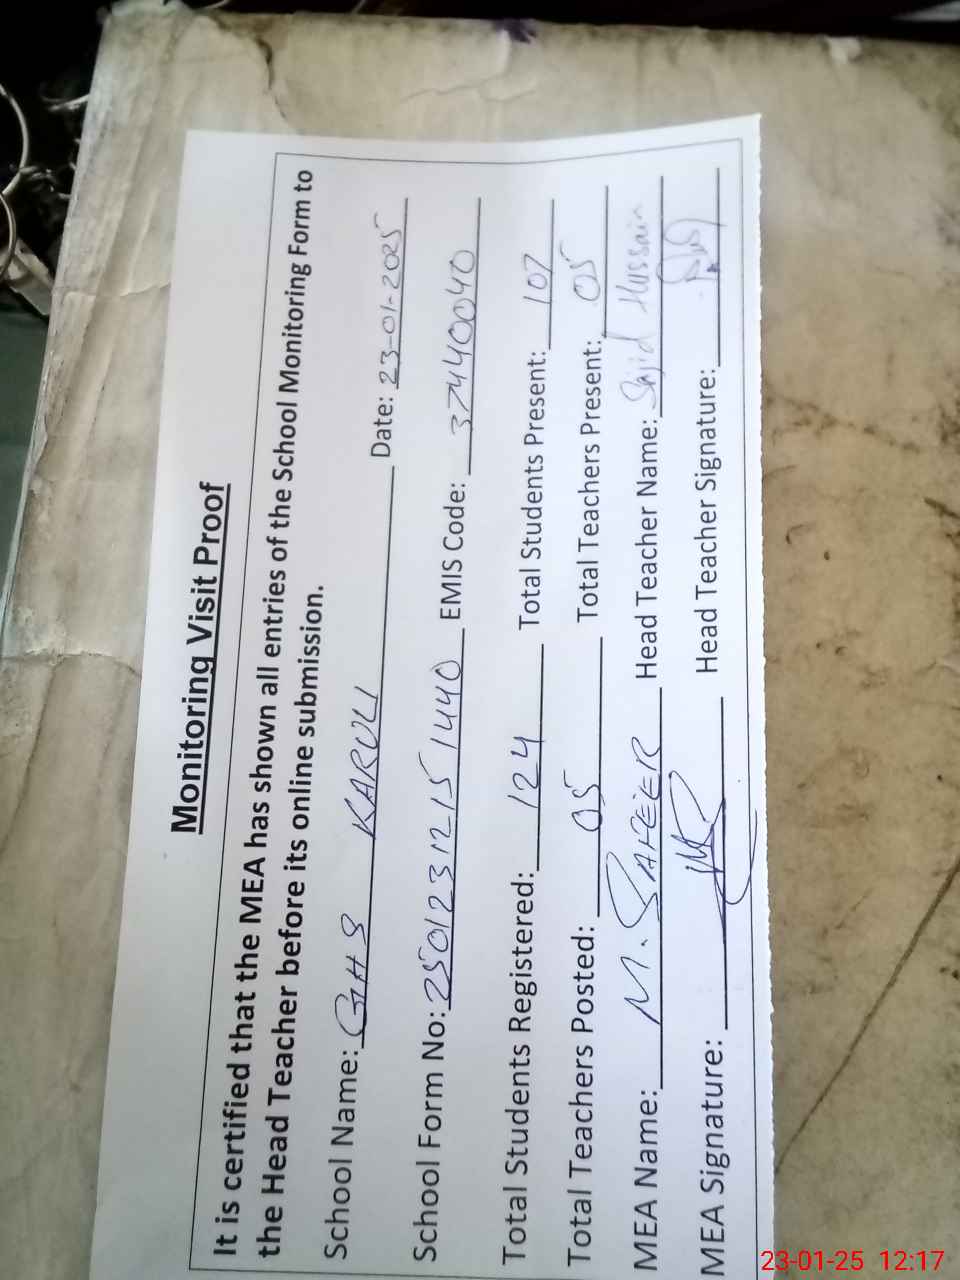 Monitoring Visit Proof
It is certified that the MEA has shown all entries of the School Monitoring Form to
the Head Teacher before its online submission.
School Name: GHS KARULI Date: 23-01-2025
School Form No: 25012312151440 EMIS Code: 37440040
Total Students Registered: 124 Total Students Present: 107
Total Teachers Posted: 05 Total Teachers Present: 05
MEA Name: M. SAFEER Head Teacher Name: Sajid Hussain
MEA Signature: Head Teacher Signature:
23-01-25 12:17